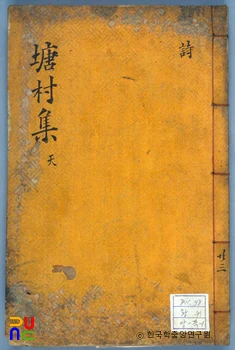 塘村集
天
詩
共三
© 한국학중앙연구원